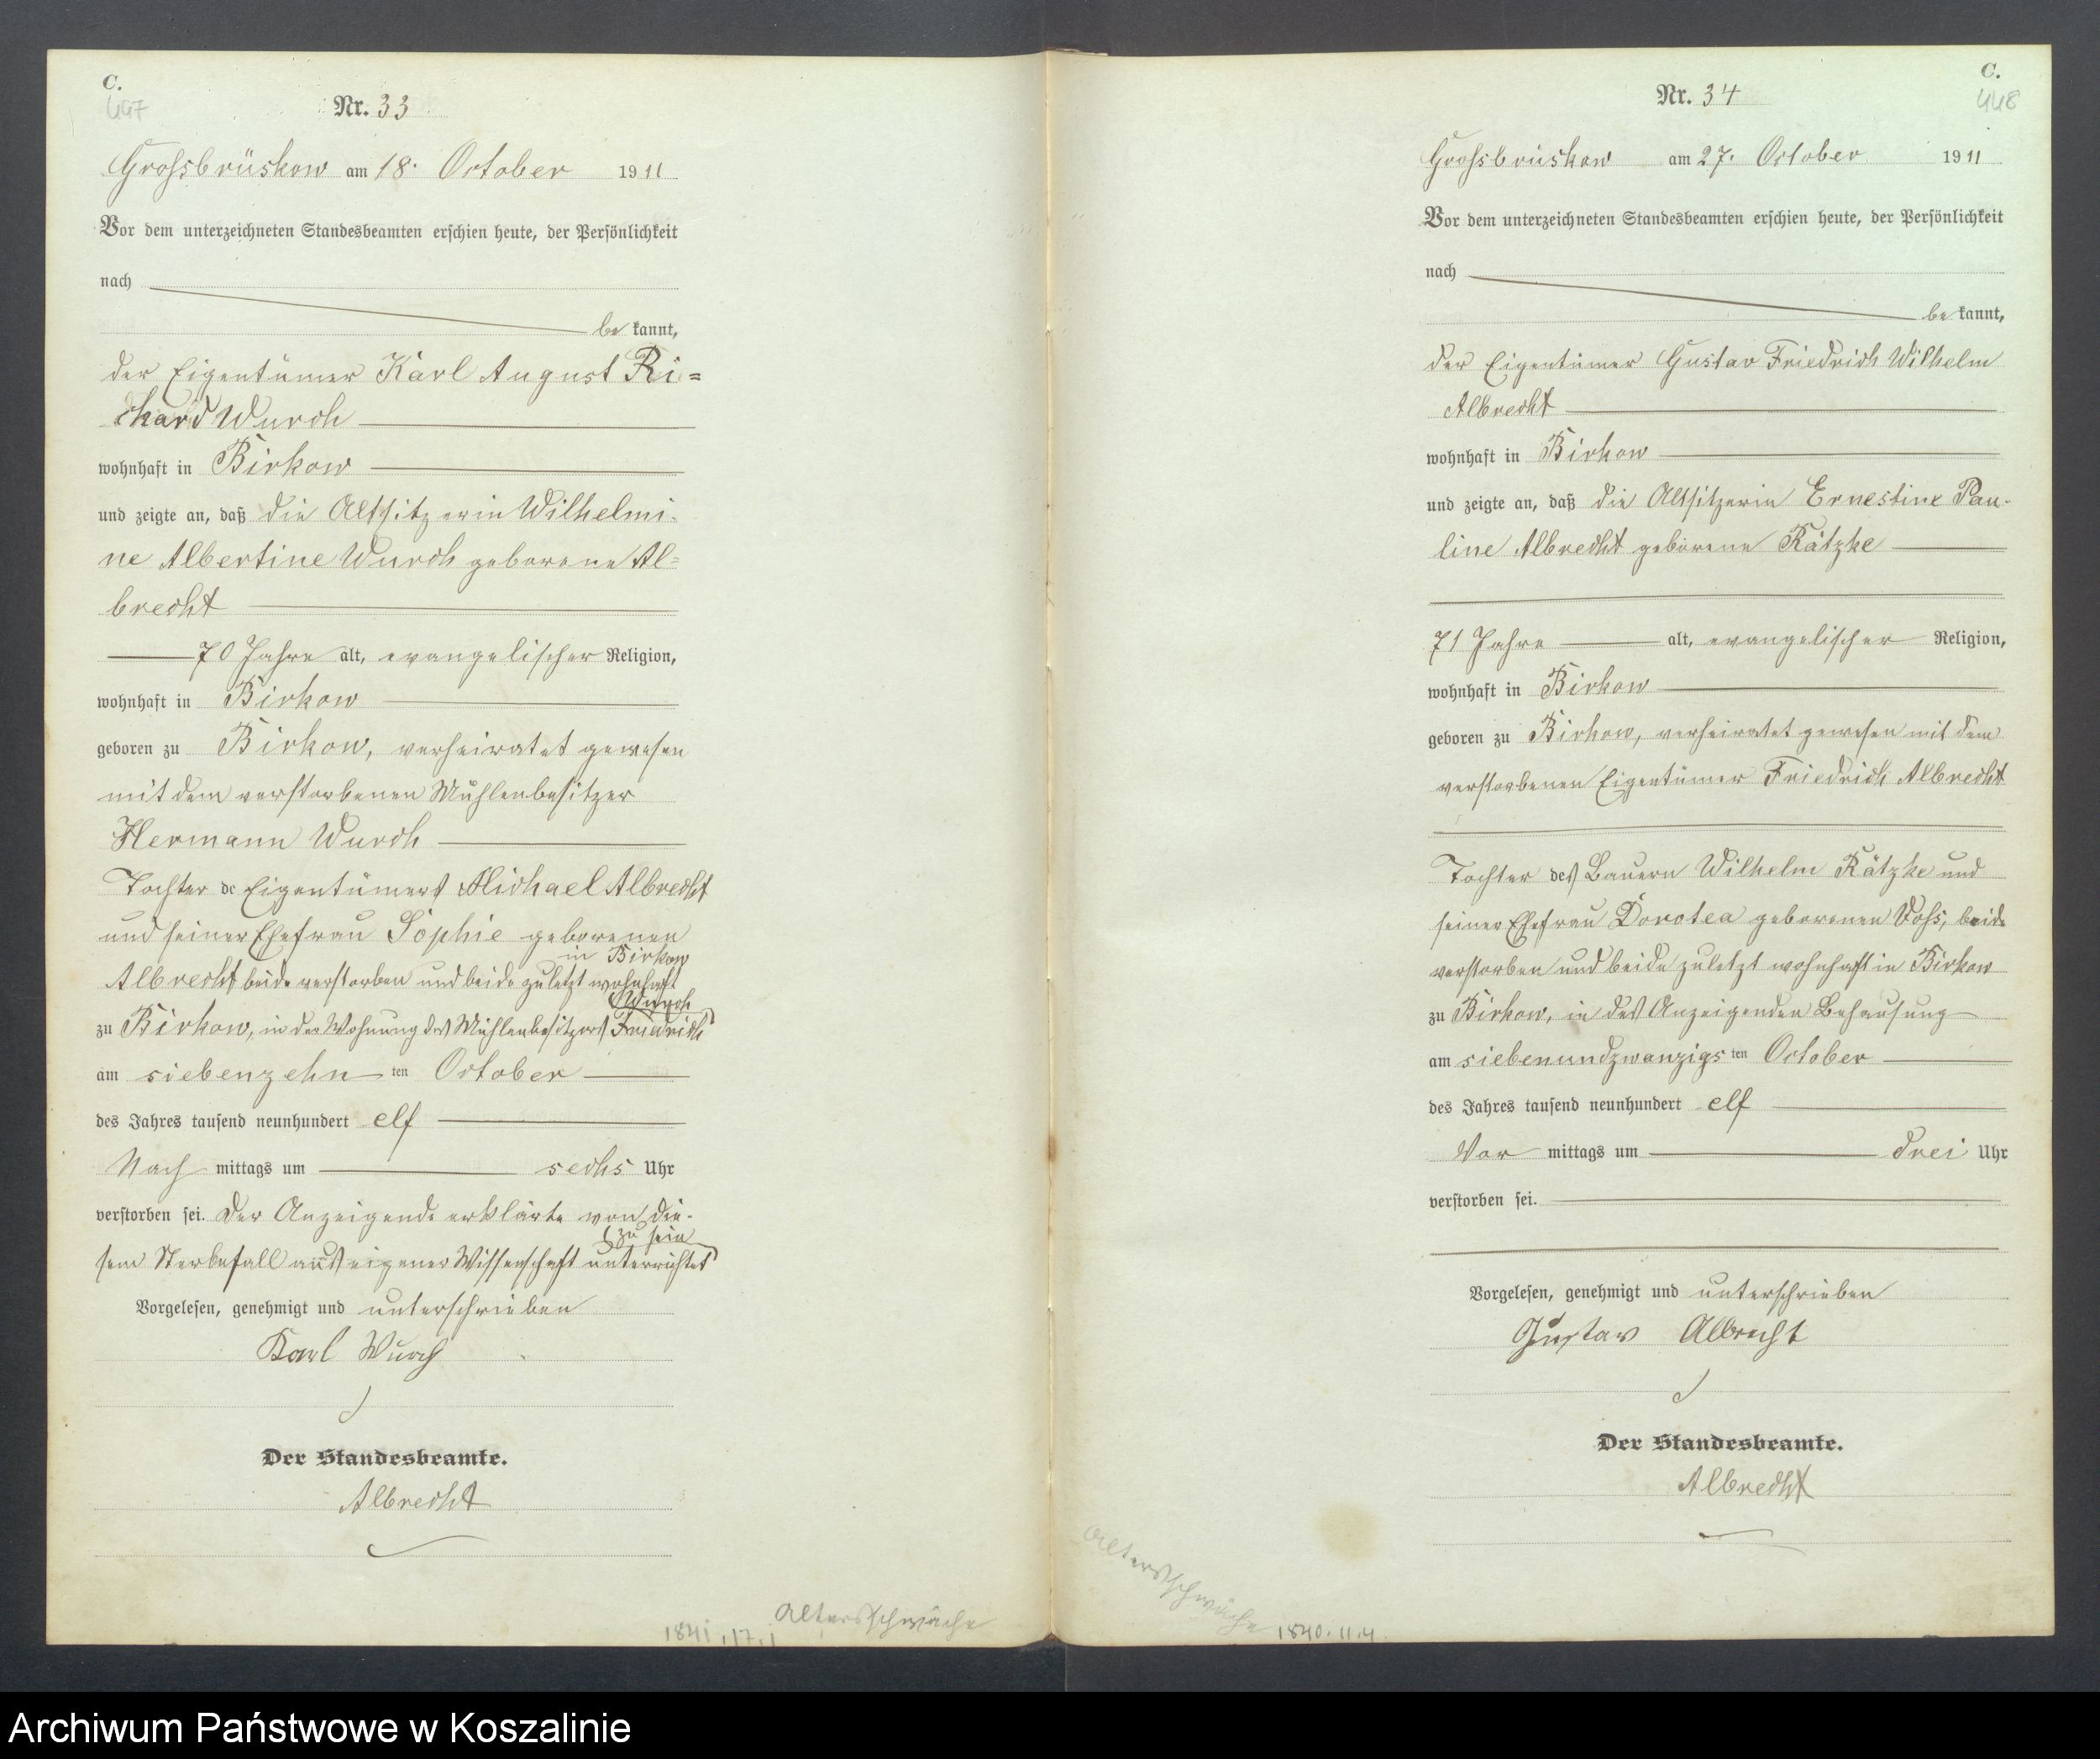 C.
447
Nr. 33
Grossbrüskow am 18. October 1911
Vor dem unterzeichneten Standesbeamten erschien heute, der Persönlichkeit
nach
be kannt,
der Eigentümer Karl August Ri=
chard Wurch
wohnhaft in Birkow
und zeigte an, daß die Altsitzerin Wilhelmi-
ne Albertine Wurch geborene Al=
brecht
70 Jahre alt, evangelischer Religion,
wohnhaft in Birkow
geboren zu Birkow, verheiratet gewesen
mit dem verstorbenen Mühlenbesitzer
Hermann Wurch
Tochter de Eigentümers Michael Albrecht
und seiner Ehefrau Sophie geborenen
in Birkow
Albrecht beide verstorben und beide zuletzt wohnhaft
Wurch
zu Birkow, in der Wohnung des Mühlenbesitzers Friedrich
am siebenzehn ten October
des Jahres tausend neunhundert elf
Nach mittags um sechs Uhr
verstorben sei. Der Anzeigende erklärte von die-
zu sein
sem Sterbefall aus eigener Wissenschaft unterrichtet
Vorgelesen, genehmigt und unterschrieben
Karl Wurch
Der Standesbeamte.
Albrecht
1841.17.1
Altersschwäche
C.
448
Nr. 34
Grossbrüskow am 27. October 1911
Vor dem unterzeichneten Standesbeamten erschien heute, der Persönlichkeit
nach
be kannt,
der Eigentümer Gustav Friedrich Wilhelm
Albrecht
wohnhaft in Birkow
und zeigte an, daß die Altsitzerin Ernestine Pau-
line Albrecht geborene Rätzke
71 Jahre alt, evangelischer Religion,
wohnhaft in Birkow
geboren zu Birkow, verheiratet gewesen mit dem
verstorbenen Eigentümer Friedrich Albrecht
Tochter des Bauern Wilhelm Rätzke und
seiner Ehefrau Dorotea geborenen Voss, beide
verstorben und beide zuletzt wohnhaft in Birkow
zu Birkow, in des Anzeigenden Behausung
am siebenundzwanzigs ten October
des Jahres tausend neunhundert elf
Vor mittags um drei Uhr
verstorben sei.
Vorgelesen, genehmigt und unterschrieben
Gustav Albrecht
Der Standesbeamte.
Albrecht
Altersschwäche
1840.11.4
Archiwum Państwowe w Koszalinie